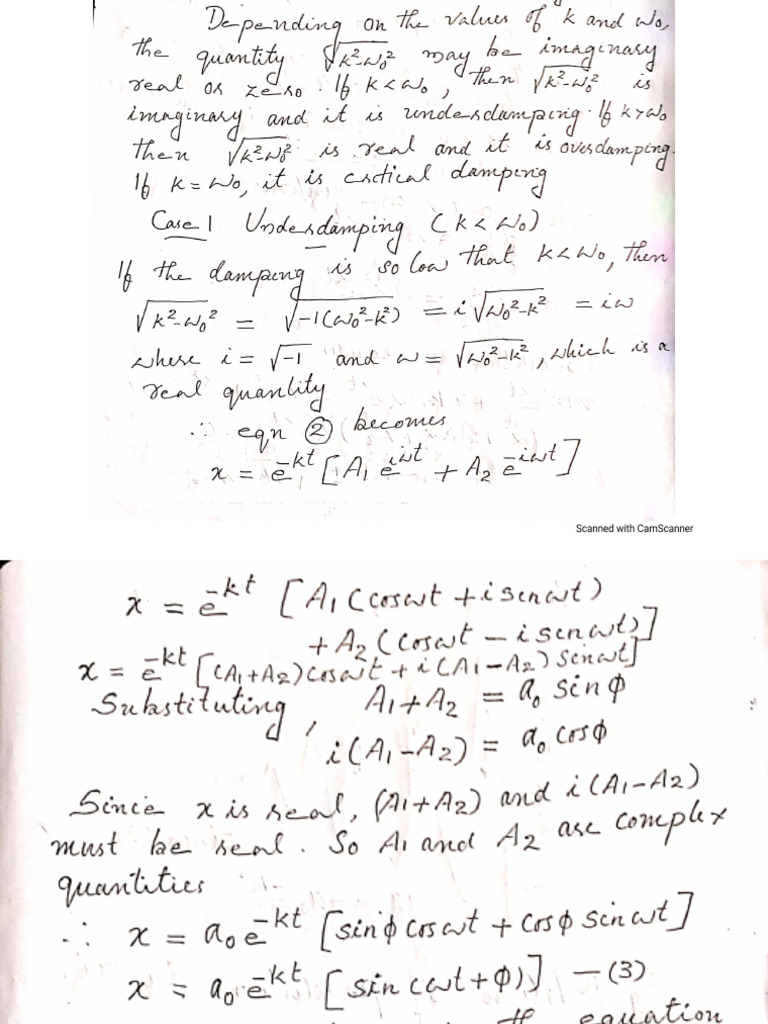 Depending on the values of k and ω₀,
the quantity √k²-ω₀² may be imaginary
real or zero. If k<ω₀, then √k²-ω₀² is
imaginary and it is underdamping. If k>ω₀
then √k²-ω₀² is real and it is overdamping.
If k = ω₀, it is critical damping
Case 1 Underdamping (k < ω₀)
If the damping is so low that k<ω₀, then
√k²-ω₀² = √-1(ω₀²-k²) = i√ω₀²-k² = iω
where i = √-1 and ω = √ω₀²-k², which is a
real quantity
∴ eqn ② becomes
x = e^-kt [A₁ e^iωt + A₂ e^-iωt]
Scanned with CamScanner
x = e^-kt [A₁(cosωt + i sinωt)
+ A₂(cosωt - i sinωt)]
x = e^-kt [(A₁+A₂)cosωt + i(A₁-A₂) sinωt]
Substituting, A₁+A₂ = a₀ sinφ
i(A₁-A₂) = a₀ cosφ
Since x is real, (A₁+A₂) and i(A₁-A₂)
must be real. So A₁ and A₂ are complex
quantities
∴ x = a₀e^-kt [sinφ cosωt + cosφ sinωt]
x = a₀ e^-kt [sin(ωt+φ)] —(3)
equation